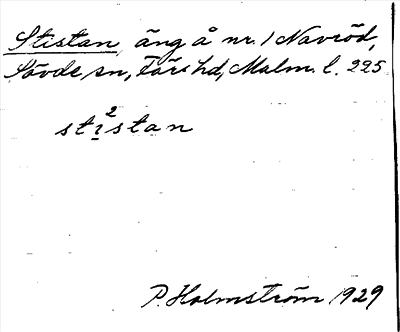 Stistan, äng å nr. 1 Navröd,
Sövde sn, Färs hd, Malm. l. 225
stı̣²stan
P. Holmström 1929